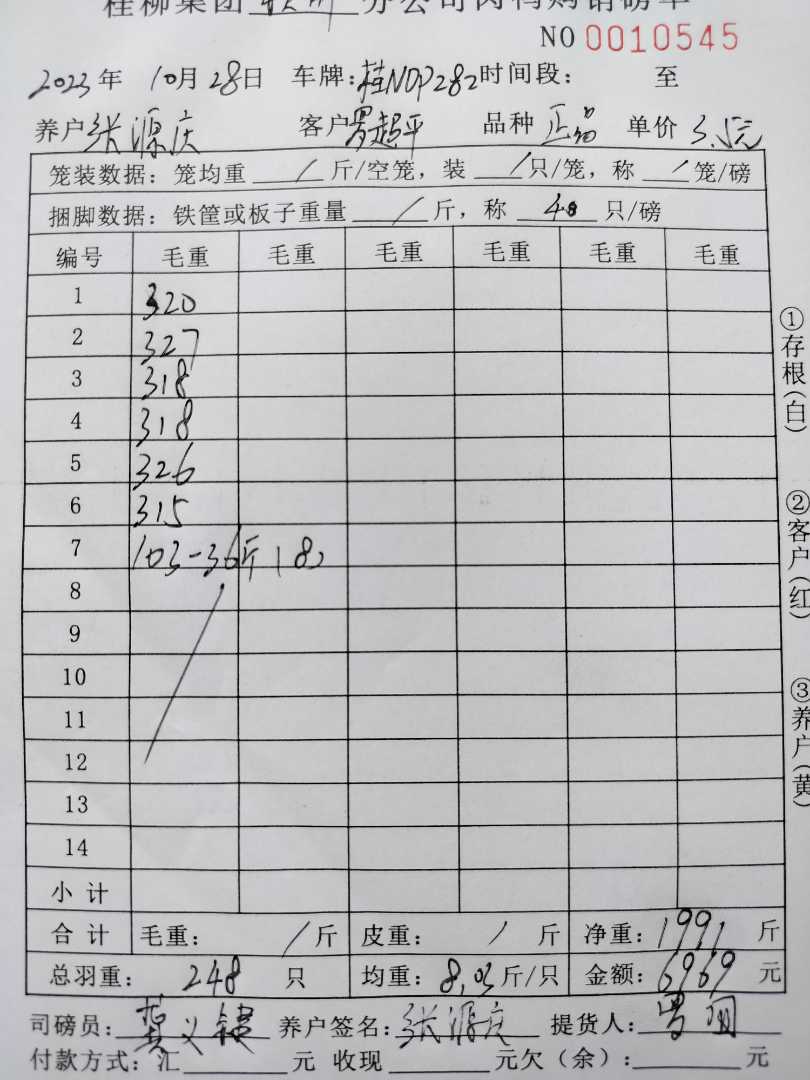 桂柳集团 分公司肉鸭购销磅单
NO 0010545
2023年 10月28日 车牌:桂NDP282时间段: 至
养户张源庆 客户罗超平 品种 正品 单价 3.5元
笼装数据: 笼均重 / 斤/空笼, 装 / 只/笼, 称 / 笼/磅
捆脚数据: 铁筐或板子重量 / 斤, 称 40 只/磅
编号 毛重 毛重 毛重 毛重 毛重 毛重
1 320
2 327
3 318
4 318
5 326
6 315
7 103-36斤
8
9
10
11
12
13
14
小计
合计 毛重: / 斤 皮重: / 斤 净重: 1991 斤
总羽重: 248 只 均重: 8.03斤/只 金额: 6969 元
司磅员: 养户签名: 张源庆 提货人:
付款方式: 汇 元 收现 元欠(余): 元
①存根(白)
②客户(红)
③养户(黄